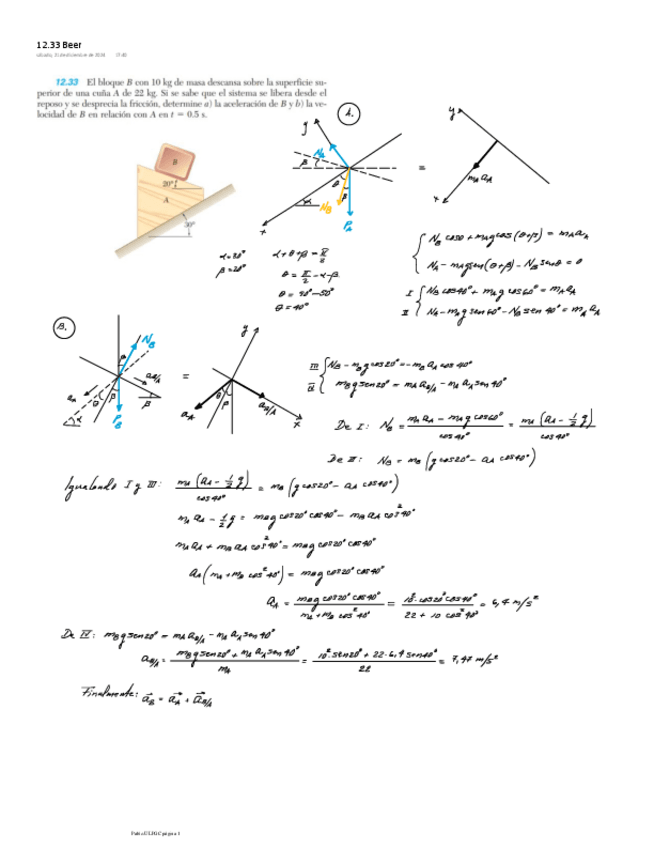 12.33 Beer
12.33 El bloque B con 10 kg de masa descansa sobre la superficie su-
perior de una cuña A de 22 kg. Si se sabe que el sistema se libera desde el
reposo y se desprecia la fricción, determine a) la aceleración de B y b) la ve-
locidad de B en relación con A en t = 0.5 s.
A.
B
20°
A
30°
y
N_A
β
θ
β
N_B
α
P_A
x
=
y
m_A a_A
x
α=30°
β=20°
α+θ+β = π/2
θ = π/2 - α - β
θ = 90° - 50°
θ = 40°
N_B cosθ + m_A g cos(θ+β) = m_A a_A
N_A - m_A g sen(θ+β) - N_B senθ = 0
I { N_B cos40° + m_A g cos60° = m_A a_A
II N_A - m_A g sen60° - N_B sen 40° = m_A a_A
B.
N_B
β
a_B/A
a_A
θ
β
β
α
P_B
=
y
θ
β
a_A
a_B/A
x
III { N_B - m_B g cos20° = - m_B a_A cos 40°
IV m_B g sen20° = m_A a_B/A - m_A a_A sen 40°
De I: N_B = (m_A a_A - m_A g cos60°)/cos 40° = m_A (a_A - 1/2 g)/cos 40°
De III: N_B = m_B (g cos20° - a_A cos40°)
Igualando I y III: m_A (a_A - 1/2 g)/cos 40° = m_B (g cos20° - a_A cos40°)
m_A a_A - 1/2 g = m_B g cos20° cos40° - m_B a_A cos² 40°
m_A a_A + m_B a_A cos² 40° = m_B g cos20° cos40°
a_A (m_A + m_B cos² 40°) = m_B g cos20° cos40°
a_A = m_B g cos20° cos40° / (m_A + m_B cos² 40°) = 10² · cos20° cos40° / (22 + 10 cos² 40°) = 6,4 m/s²
De IV: m_B g sen20° = m_A a_B/A - m_A a_A sen 40°
a_B/A = (m_B g sen20° + m_A a_A sen 40°)/m_A = (10² · sen20° + 22 · 6,4 sen40°)/22 = 7,47 m/s²
Finalmente: a_B = a_A + a_B/A